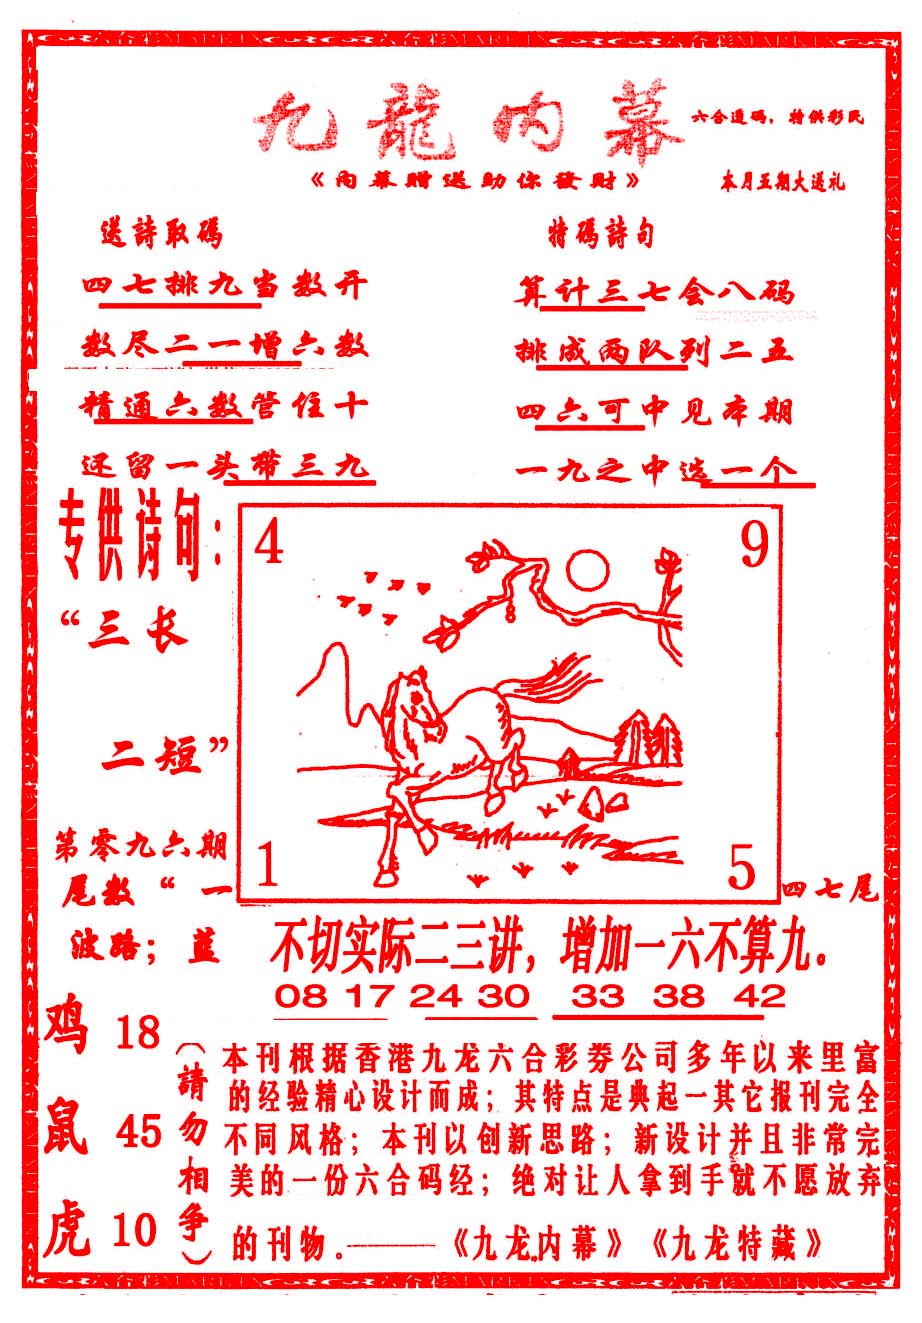 九龍内幕
六合透码，特供彩民
《内幕赠送助你發財》
本月五期大送礼
送詩取碼
四七排九当数开
数尽二一增六数
精通六数管住十
还留一头带三九
特碼詩句
算计三七会八码
排成两队列二五
四六可中见本期
一九之中选一个
专供诗句：
“三长
二短”
第零九六期
尾数“一
波路；蓝
4
9
1
5
四七尾
不切实际二三讲，增加一六不算九。
08 17 24 30 33 38 42
鸡 18
鼠 45
虎 10
（請勿相争）
本刊根据香港九龙六合彩券公司多年以来里富
的经验精心设计而成；其特点是典起一其它报刊完全
不同风格；本刊以创新思路；新设计并且非常完
美的一份六合码经；绝对让人拿到手就不愿放弃
的刊物。——《九龙内幕》《九龙特藏》